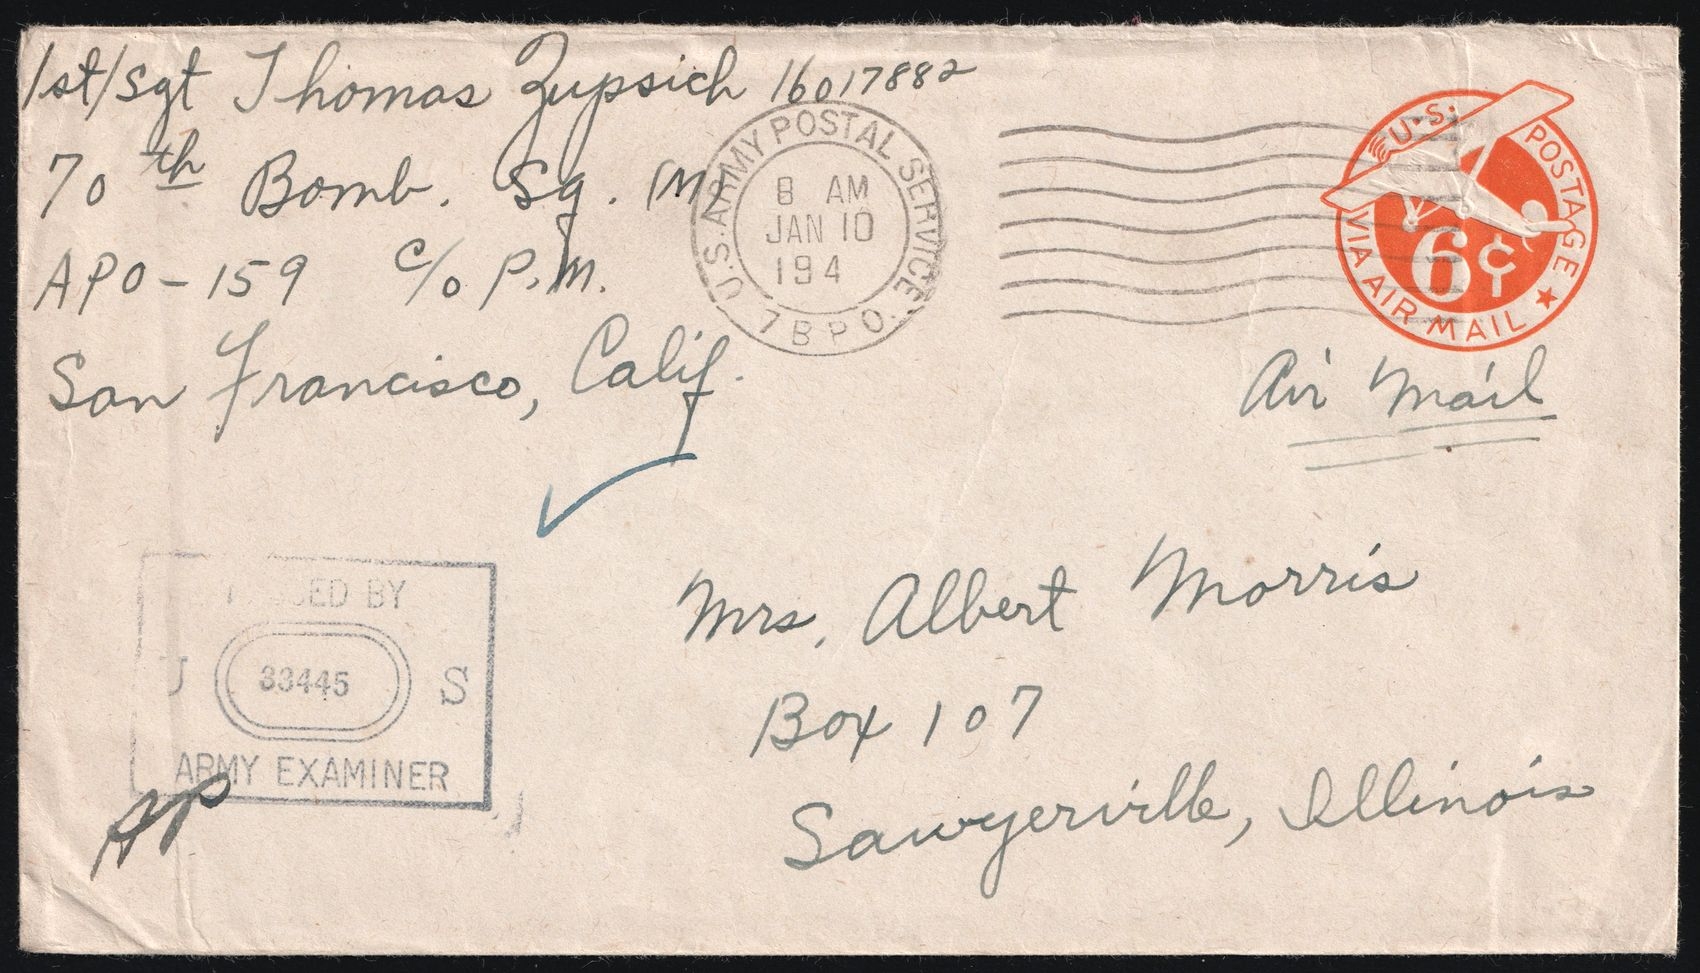 1st/Sgt Thomas Zupsich 16017882
70th Bomb. Sq. (M)
APO - 159 c/o P.M.
San Francisco, Calif.
U.S. ARMY POSTAL SERVICE
8 AM
JAN 10
194
7 B P O.
U.S. POSTAGE
6¢
VIA AIR MAIL
Air Mail
BY
33445
S
ARMY EXAMINER
Mrs. Albert Morris
Box 107
Sawyerville, Illinois